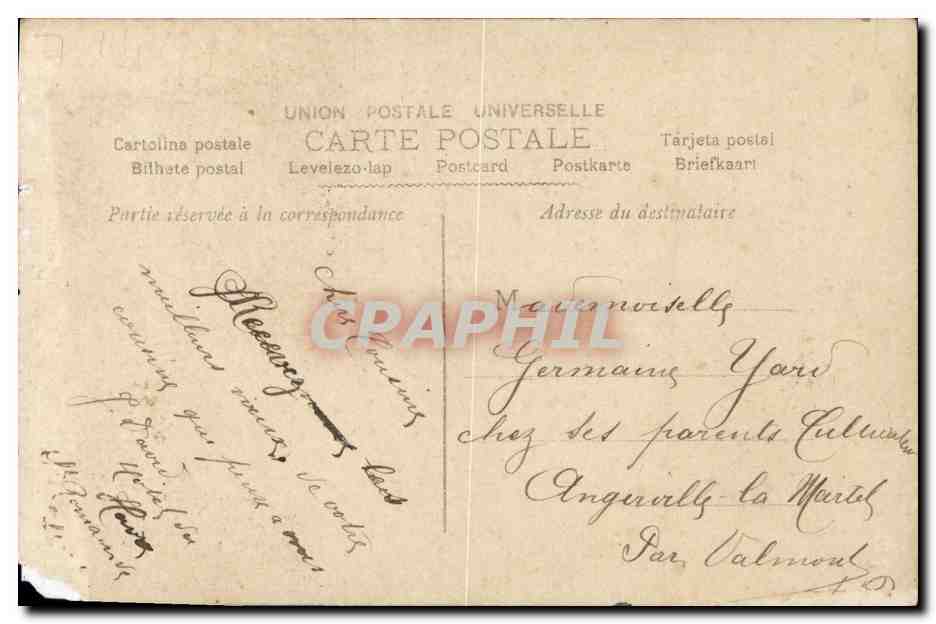 UNION POSTALE UNIVERSELLE
CARTE POSTALE
Cartolina postale
Tarjeta postal
Bilhete postal
Levelezo-lap
Postcard
Postkarte
Briefkaart
Partie réservée à la correspondance
Adresse du destinataire
CPAPHIL
Chère Cousine
Recevez les
meilleurs vœux de votre
cousine qui pense à vous
G. David
Hôtel du
Havre
St Romain de
Mademoiselle
Germaine Yard
chez ses parents
Angerville-la Martel
Par Valmont